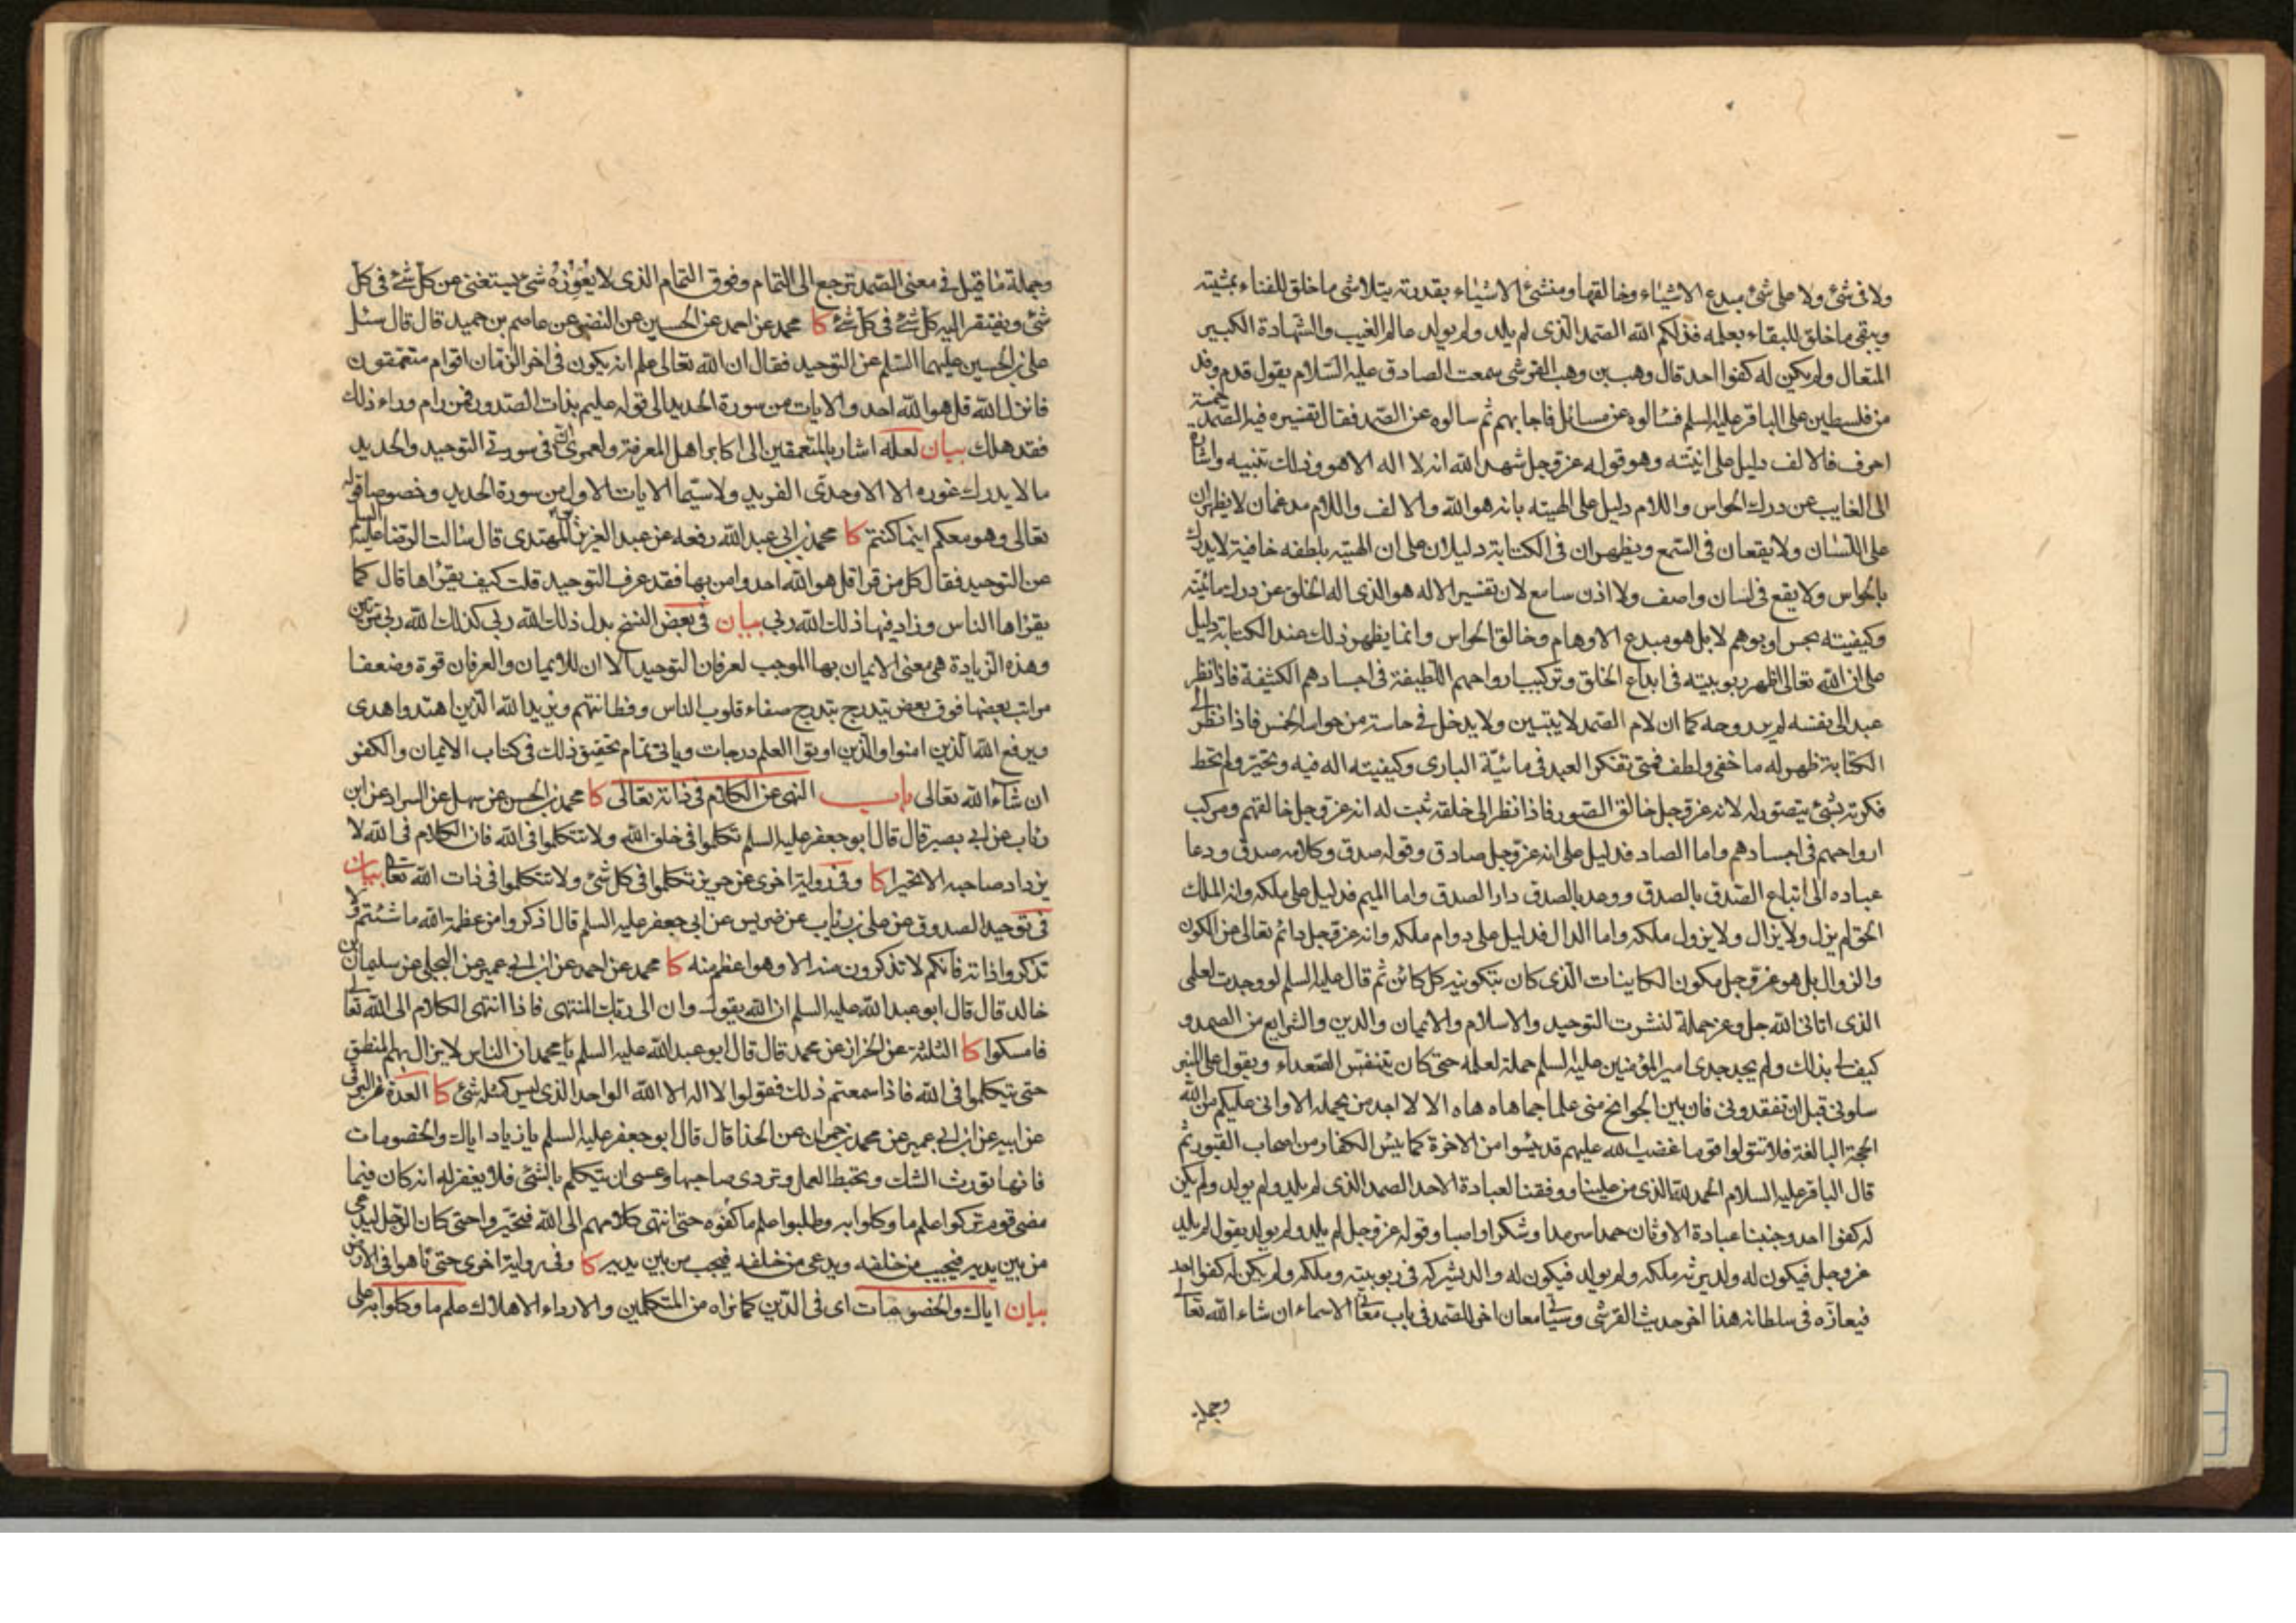 ولا فى شئ ولا على شئ مبدع الاشياء وخالقها ومنشئ الاشياء بقدرته يتلاشى ما خلق للفناء بمشيته
ويبقى ما خلق للبقاء بعلمه فذلكم الله الصمد الذى لم يلد ولم يولد عالم الغيب والشهادة الكبير
المتعال ولم يكن له كفوا احد قال وهب بن وهب القرشى سمعت الصادق عليه السلام يقول قدم وفد
من فلسطين على الباقر عليه السلم فسالوه عن مسائل فاجابهم ثم سالوه عن الصمد فقال تفسيره فيه الصمد خمسة
احرف فالالف دليل على انيته وهو قوله عز وجل شهد الله انه لا اله الا هو وذلك تنبيه واشارة
الى الغايب عن درك الحواس واللام دليل على الهيته بانه هو الله والالف واللام مدغمان لا يظهران
على اللسان ولا يقعان فى السمع ويظهران فى الكتابة دليلان على ان الهيته بلطفه خافية لا يدرك
بالحواس ولا يقع فى لسان واصف ولا اذن سامع لان تفسير الاله هو الذى اله الخلق عن درك مائيته
وكيفيته بحس او بوهم لا بل هو مبدع الاوهام وخالق الحواس وانما يظهر ذلك عند الكتابة دليل
على ان الله تعالى اظهر ربوبيته فى ابداع الخلق وتركيب ارواحهم اللطيفة فى اجسادهم الكثيفة فاذا نظر
عبد الى نفسه لم ير روحه كما ان لام الصمد لا يتبين ولا يدخل فى حاسة من حواسه الخمس فاذا نظر الى
الكتابة ظهر له ما خفى ولطف فمتى تفكر العبد فى مائية البارى وكيفيته اله فيه وتحير ولم تحط
فكرته بشئ يتصور له لانه عز وجل خالق الصور فاذا نظر الى خلقه ثبت له انه عز وجل خالقهم ومركب
ارواحهم فى اجسادهم واما الصاد فدليل على انه عز وجل صادق وقوله صدق وكلامه صدق ودعا
عباده الى اتباع الصدق بالصدق ووعد بالصدق دار الصدق واما الميم فدليل على ملكه وانه الملك
الحق لم يزل ولا يزال ولا يزول ملكه واما الدال فدليل على دوام ملكه وانه عز وجل دائم تعالى عن الكون
والزوال بل هو عز وجل مكون الكاينات الذى كان بتكوينه كل كائن ثم قال عليه السلم لو وجدت لعلمى
الذى اتانى الله جل وعز حملة لنشرت التوحيد والاسلام والايمان والدين والشرايع من الصمد و
كيف لى بذلك ولم يجد جدى امير المؤمنين عليه السلم حملة لعلمه حتى كان يتنفس الصعداء ويقول على المنبر
سلونى قبل ان تفقدونى فان بين الجوانح منى علما جما هاه هاه الا لا اجد من يحمله الا وانى عليكم من الله
الحجة البالغة فلا تتولوا قوما غضب الله عليهم قد يئسوا من الاخرة كما يئس الكفار من اصحاب القبور ثم
قال الباقر عليه السلام الحمد لله الذى من علينا ووفقنا لعبادة الاحد الصمد الذى لم يلد ولم يولد ولم يكن
له كفوا احد وجنبنا عبادة الاوثان حمدا سرمدا وشكرا واصبا وقوله عز وجل لم يلد ولم يولد يقول لم يلد
عز وجل فيكون له ولد يرثه ملكه ولم يولد فيكون له والد يشركه فى ربوبيته وملكه ولم يكن له كفوا احد
فيعازه فى سلطانه هذا اخر حديث القرشى وسياتى معان اخر للصمد فى باب معانى الاسماء ان شاء الله تعالى
وجملة
وجملة ما قيل فى معنى الصمد ترجع الى التمام وفوق التمام الذى لا يعوزه شئ يستغنى عن كل شئ فى كل
شئ ويفتقر اليه كل شئ فى كل شئ كا محمد عن احمد عن الحسين عن النضر عن عاصم بن حميد قال قال سئل
على بن الحسين عليهما السلم عن التوحيد فقال ان الله تعالى علم انه يكون فى اخر الزمان اقوام متعمقون
فانزل الله قل هو الله احد والايات من سورة الحديد الى قوله عليم بذات الصدور فمن رام وراء ذلك
فقد هلك بيان لعله اشار بالمتعمقين الى اكابر اهل المعرفة ولعمرى ان فى سورتى التوحيد والحديد
ما لا يدرك غوره الا الاوحدى الفريد ولا سيما الايات الاول من سورة الحديد وخصوصا قوله
تعالى وهو معكم اينما كنتم كا محمد بن ابى عبد الله رفعه عن عبد العزيز بن المهتدى قال سالت الرضا عليه السلم
عن التوحيد فقال كل من قرا قل هو الله احد وامن بها فقد عرف التوحيد قلت كيف يقرؤها قال كما
يقراها الناس وزاد فيها ذلك الله ربى بيان فى بعض النسخ بدل ذلك الله ربى كذلك الله ربى مرتين
وهذه الزيادة هى معنى الايمان بها الموجب لعرفان التوحيد الا ان للايمان والعرفان قوة وضعفا
مراتب بعضها فوق بعض يتدرج بتدرج صفاء قلوب الناس وفطانتهم ويزيد الله الذين اهتدوا هدى
ويرفع الله الذين امنوا والذين اوتوا العلم درجات وياتى تمام تحقيق ذلك فى كتاب الايمان والكفر
ان شاء الله تعالى باب النهى عن الكلام فى ذاته تعالى كا محمد بن الحسن عن سهل عن السراد عن ابن
رئاب عن ابى بصير قال قال ابو جعفر عليه السلم تكلموا فى خلق الله ولا تتكلموا فى الله فان الكلام فى الله لا
يزداد صاحبه الا تحيرا كا وفى رواية اخرى عن حريز تكلموا فى كل شئ ولا تتكلموا فى ذات الله تعالى بيان
فى توحيد الصدوق عن على بن رئاب عن ضريس عن ابى جعفر عليه السلم قال اذكروا من عظمة الله ما شئتم ولا
تذكروا ذاته فانكم لا تذكرون منه الا وهو اعظم منه كا محمد عن احمد عن ابن ابى عمير عن البجلى عن سليمان بن
خالد قال قال ابو عبد الله عليه السلم ان الله يقول وان الى ربك المنتهى فاذا انتهى الكلام الى الله تعالى
فامسكوا كا الثلثة عن الخراز عن محمد قال قال ابو عبد الله عليه السلم يا محمد ان الناس لا يزال بهم المنطق
حتى يتكلموا فى الله فاذا سمعتم ذلك فقولوا لا اله الا الله الواحد الذى ليس كمثله شئ كا العدة عن البرقى
عن ابيه عن ابن ابى عمير عن محمد بن حمران عن الحذا قال قال ابو جعفر عليه السلم يا زياد اياك والخصومات
فانها تورث الشك وتحبط العمل وتردى صاحبها وعسى ان يتكلم بالشئ فلا يغفر له انه كان فيما
مضى قوم تركوا علم ما وكلوا به وطلبوا علم ما كفوه حتى انتهى كلامهم الى الله فتحيروا حتى كان الرجل ليدعى
من بين يديه فيجيب من خلفه ويدعى من خلفه فيجيب من بين يديه كا وفى رواية اخرى حتى تاهوا فى الارض
بيان اياك والخصومات اى فى الدين كما نراه من المتكلمين والارداء الاهلاك علم ما وكلوا به على